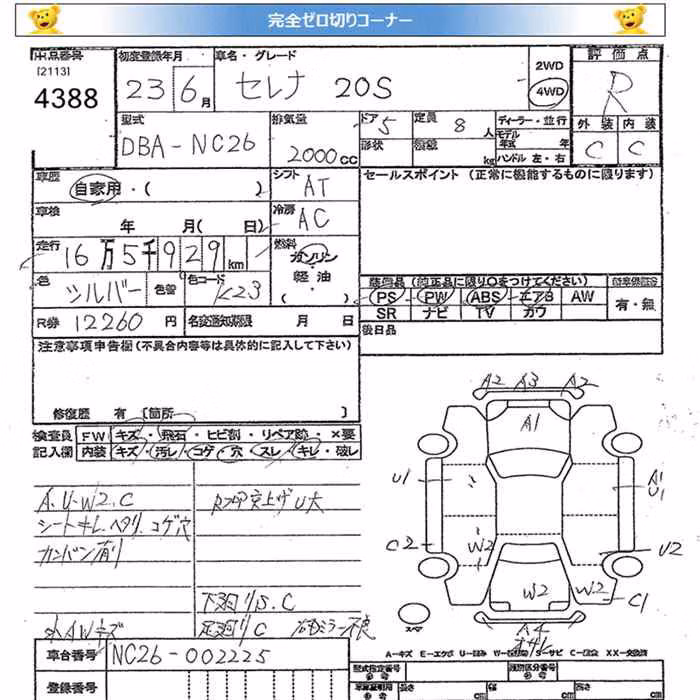 完全ゼロ切りコーナー
出品番号
[2113]
4388
初度登録年月
23/6月
車名・グレード
セレナ 20S
2WD
4WD
評価点
R
型式
DBA-NC26
排気量
2000cc
ドア 5
形状
定員 8人
積載 kg
ディーラー・並行
モデル
年式 年
ハンドル 左・右
外装 内装
C C
車歴 自家用・( )
シフト AT
セールスポイント (正常に機能するものに限ります)
車検 年 月( 日)
冷房 AC
走行 16万5千929km
燃料 ガソリン
軽油
( )
色 シルバー
色替
色コード K23
装備品 (純正品に限り○をつけてください)
PS PW ABS エアB AW
SR ナビ TV カワ
有・無
R券 12260円
名変通知期限 月 日
後日品
注意事項申告欄 (不具合内容等は具体的に記入して下さい)
修復歴 有 [箇所 ]
検査員 FW キズ・飛石・ヒビ割・リペア跡・×要
記入欄 内装 キズ・汚レ・コゲ・穴・スレ・キレ・破レ
A2 A3 A2
A1
U1
A1
U1
C2
W2
U2
W2
W2
C1
A4
スペア
A.U.W2.C
シートキレ.ヘタリ.コゲ穴
カンバン有り
突上ゲU大
下廻りS.C
社外AWキズ
足廻りC
ミラー不良
A-キズ E-エクボ U-凹み W-波 S-サビ C-腐食 XX-交換済
車台番号 NC26-002225
登録番号
型式指定番号
類別区分番号
長さ cm
幅 cm
高さ cm